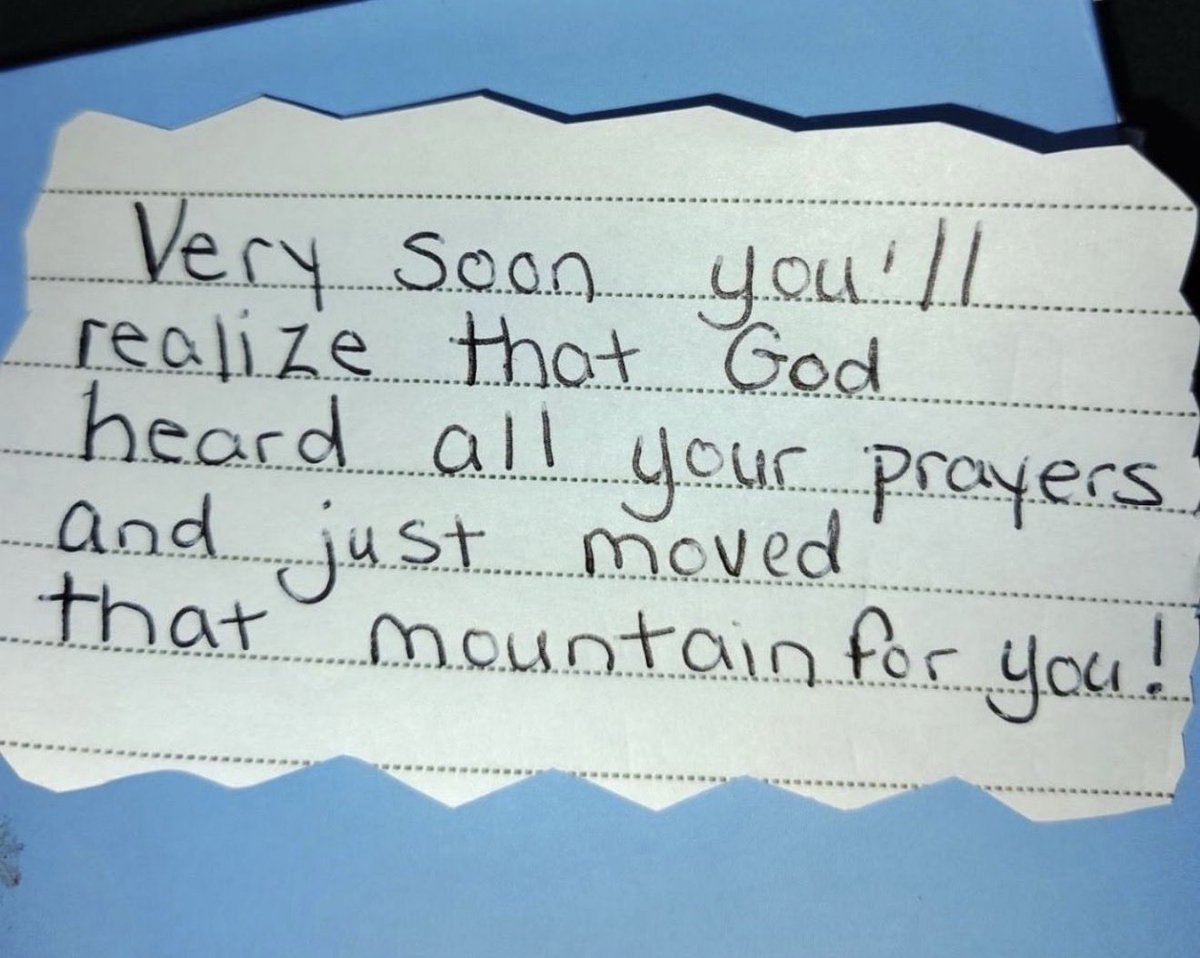 Very soon you'll
realize that God
heard all your prayers
and just moved
that mountain for you!